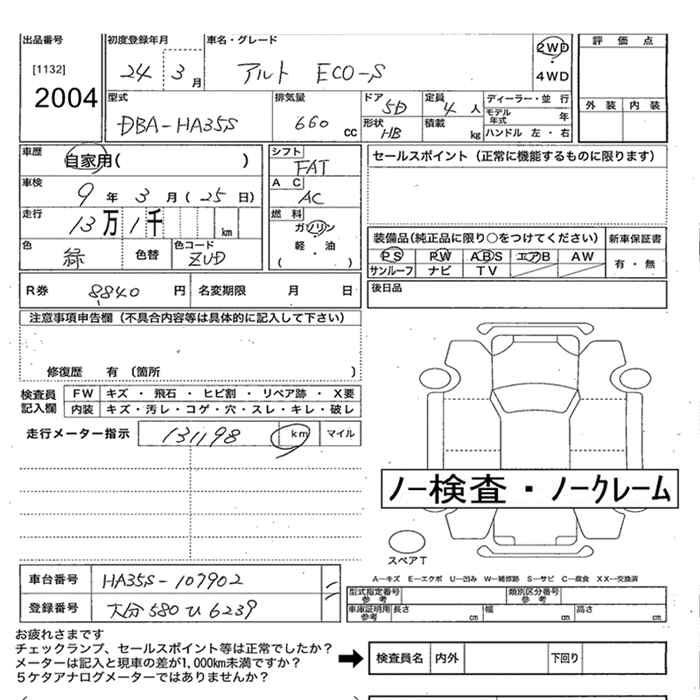 出品番号 初度登録年月 車名・グレード 評価点
[1132] 2004 24 3月 アルト ECO-S 2WD・4WD 外装 内装
型式 排気量 ドア 5D 定員 4人 ディーラー・並行
DBA-HA35S 660cc 形状 HB 積載 kg モデル年式 年
ハンドル 左・右
車歴 自家用( ) シフト FAT セールスポイント (正常に機能するものに限ります)
車検 9年3月(25日) AC AC
走行 13万1千 km 燃料 ガソリン・軽・油 ( )
装備品(純正品に限り○をつけてください) 新車保証書
色 緑 色替 色コード ZUD PS PW ABS エアB AW 有・無
サンルーフ ナビ TV
R券 8840円 名変期限 月 日 後日品
注意事項申告欄 (不具合内容等は具体的に記入して下さい)
修復歴 有 (箇所 )
検査員記入欄 FW キズ・飛石・ヒビ割・リペア跡・X要
内装 キズ・汚レ・コゲ・穴・スレ・キレ・破レ
走行メーター指示 131198 km マイル
ノー検査・ノークレーム
スペアT
A―キズ E―エクボ U―凹み W―補修跡 S―サビ C―腐食 XX―交換済
車台番号 HA35S-107902 型式指定番号 参考 類別区分番号 参考
登録番号 大分 580 ひ 6239 車庫証明用 参考 長さ cm 幅 cm 高さ cm
お疲れさまです
チェックランプ、セールスポイント等は正常でしたか?
メーターは記入と現車の差が1,000km未満ですか?
5ケタアナログメーターではありませんか?
検査員名 内外 下回り